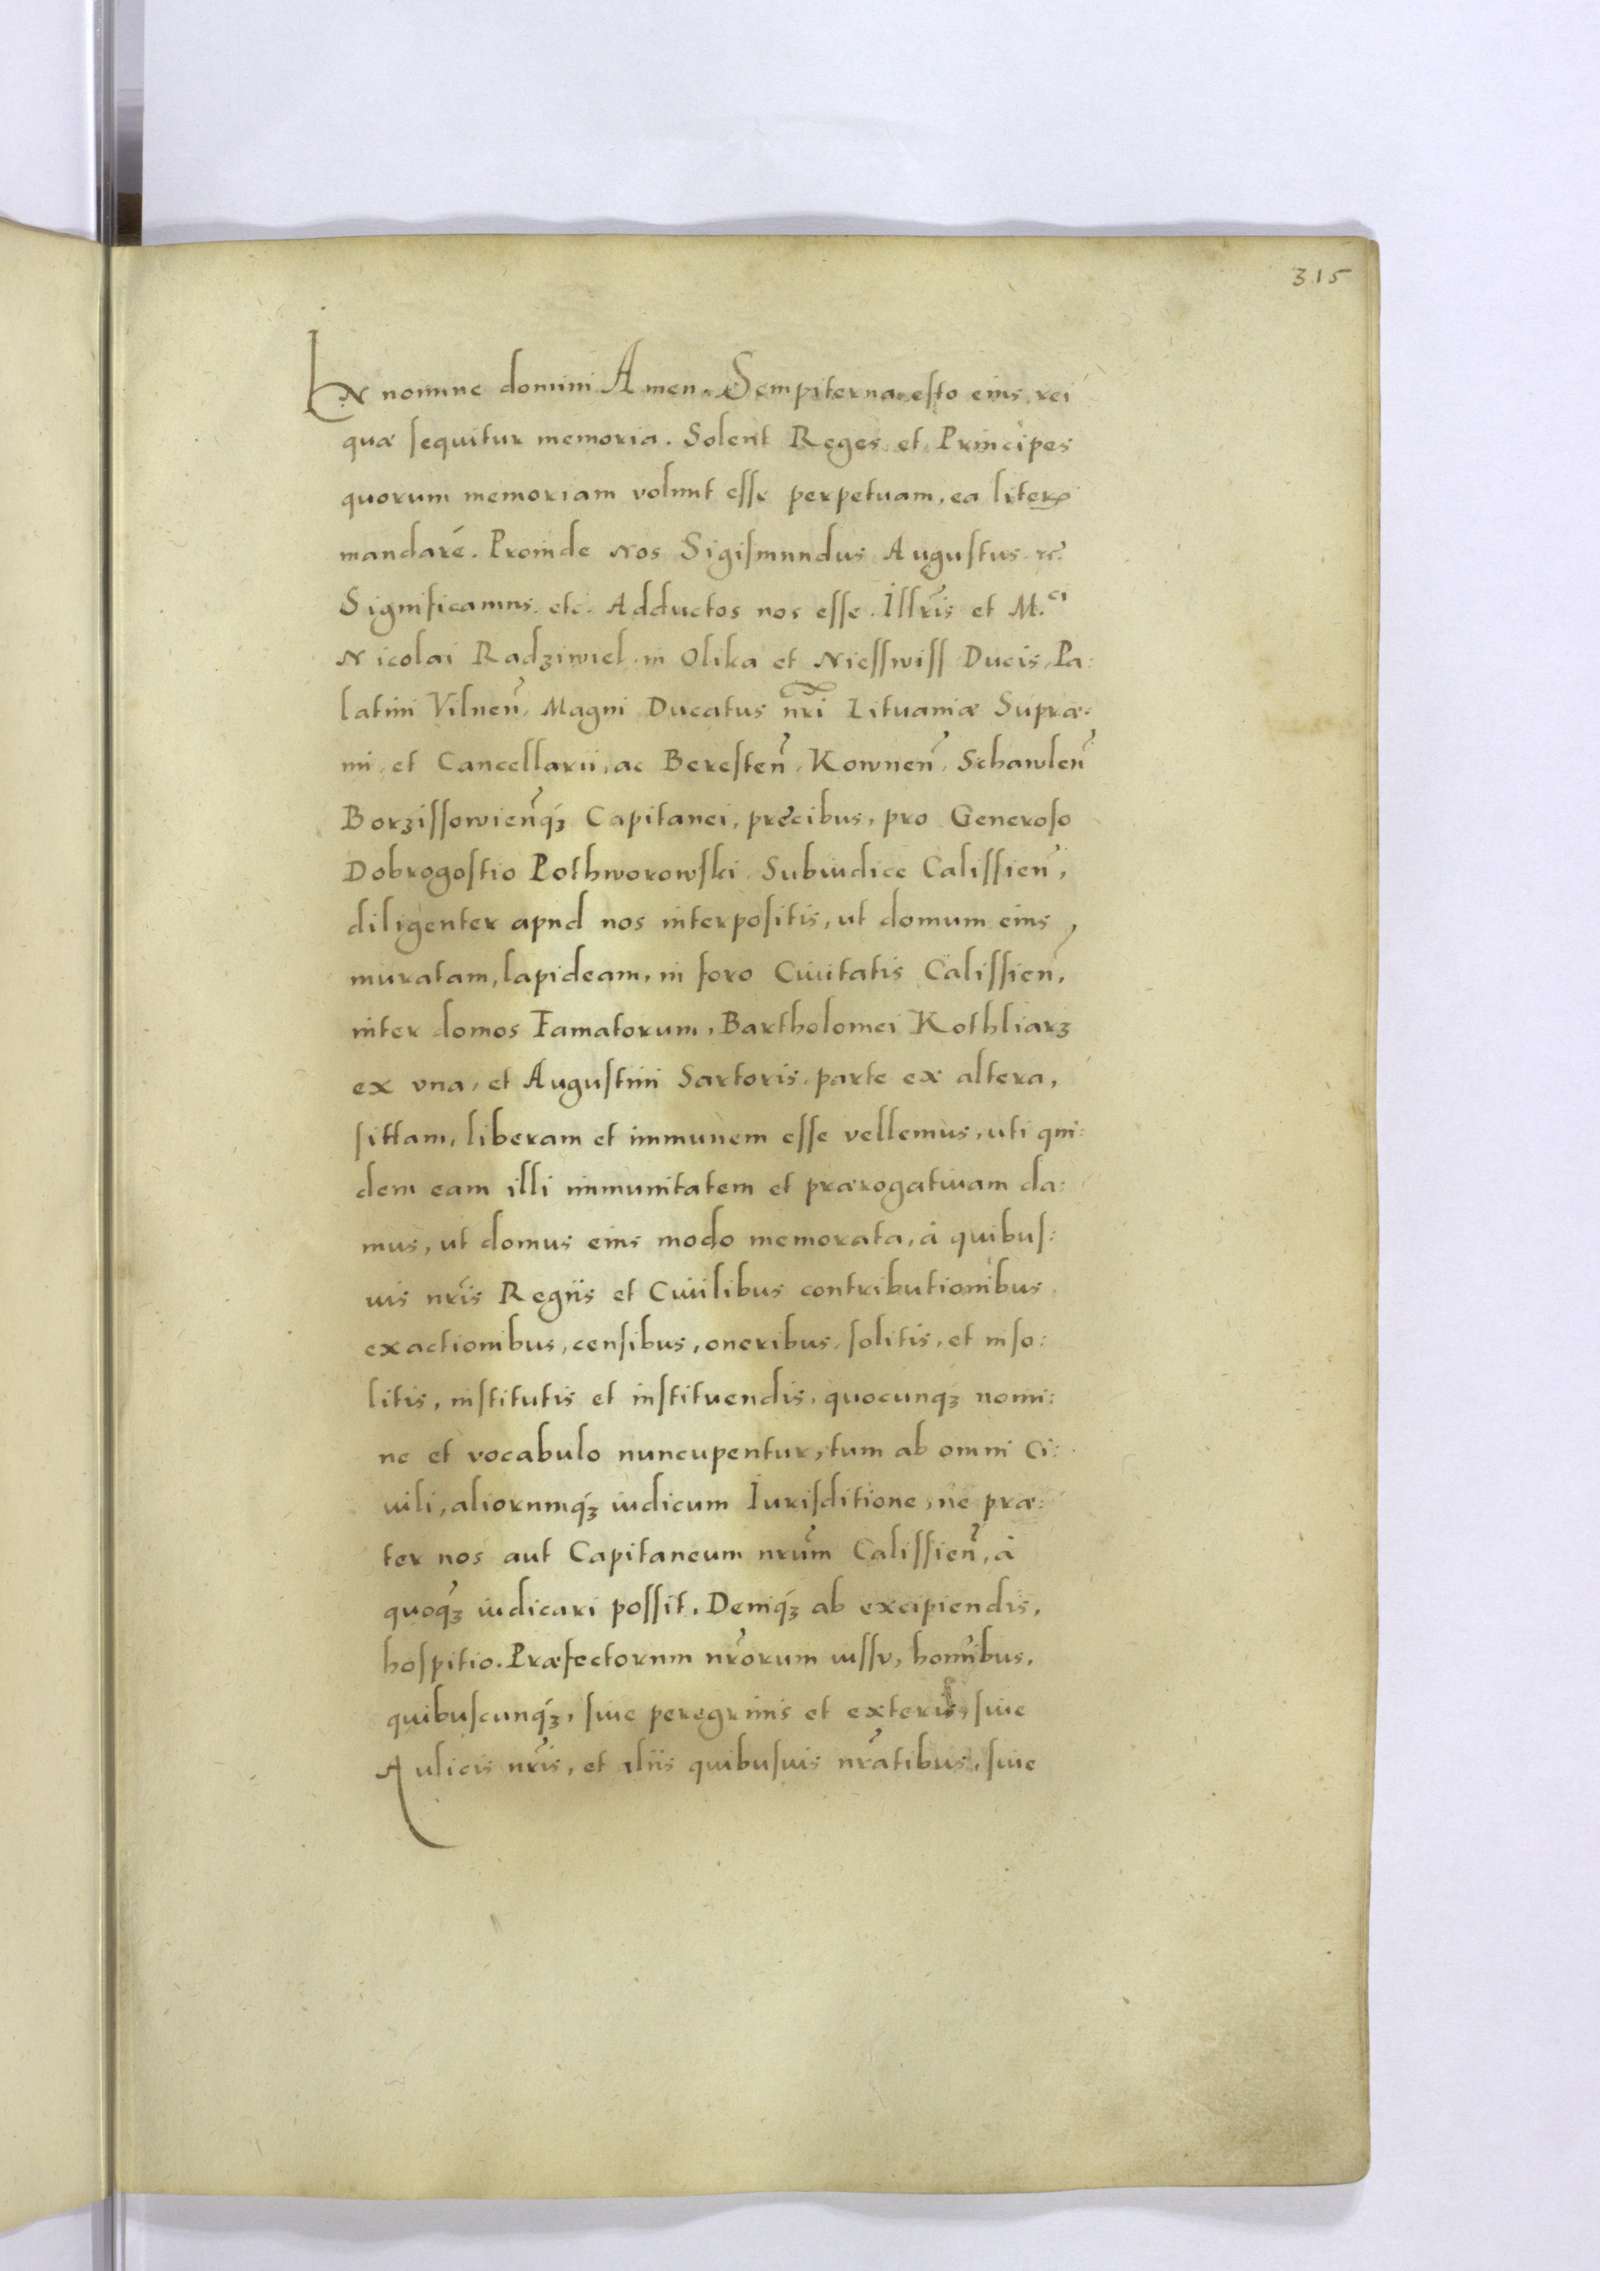 315
In nomine domini Amen. Sempiterna esto eius rei
quæ sequitur memoria. Solent Reges et Principes
quorum memoriam volunt esse perpetuam, ea literis
mandare. Proinde Nos Sigismundus Augustus etc.
Significamus etc. Adductos nos esse Illris et M.ci
Nicolai Radziwiel in Olika et Niesswiss Ducis, Pa:
latini Vilnen̄, Magni Ducatus nr̄i Lituaniæ Supræ:
mi, et Cancellarii, ac Beresten̄, Kownen̄, Schawlen̄
Borzissowien̄qꝫ Capitanei, precibus, pro Generoso
Dobrogostio Pothworowski Subiudice Calissien̄,
diligenter apud nos interpositis, ut domum eius
muratam, lapideam, in foro Ciuitatis Calissien̄,
inter domos Famatorum, Bartholomei Kothliarz
ex vna, et Augustini Sartoris, parte ex altera,
sittam, liberam et immunem esse vellemus, uti qui:
dem eam illi immunitatem et prærogatiuam da:
mus, ut domus eius modo memorata, à quibus:
uis nr̄is Regiis et Ciuilibus contributionibus,
exactionibus, censibus, oneribus, solitis, et inso:
litis, institutis et instituendis, quocunqꝫ nomi:
ne et vocabulo nuncupentur, tum ab omni Ci:
uili, aliorumqꝫ iudicum Iurisditione, ne præ:
ter nos aut Capitaneum nr̄um Calissien̄, à
quoqꝫ iudicari possit. Deniqꝫ ab excipiendis,
hospitio. Præfectorum nr̄orum iussu, hom̄ibus,
quibuscunqꝫ, siue peregrinis et exteris, siue
Aulicis nr̄is, et aliis quibusuis nr̄atibus, siue